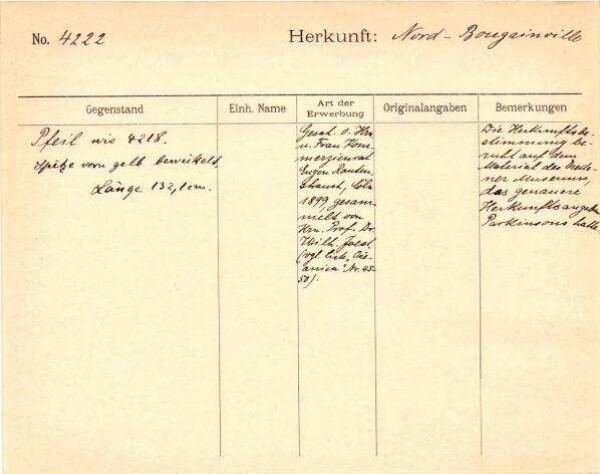 No. 4222
Herkunft: Nord-Bougainville
Gegenstand
Einh. Name
Art der
Erwerbung
Originalangaben
Bemerkungen
Pfeil wie 4218.
Spitze vorn gelb bewickelt.
Länge 132,1 cm.
Gesch. v. Hrn
u. Frau Kom-
merzienrat
Eugen Rauten-
strauch, Cöln
1899, gesam-
melt von
Hrn. Prof. Dr.
Wilh. Joest
(vgl. "Oze-
anien" Nr. 48-
50).
Die Herkunftsbe-
stimmung be-
ruht auf dem
Material des Dresde-
ner Museums,
das genauere
Herkunftsangaben
Parkinsons hatte.